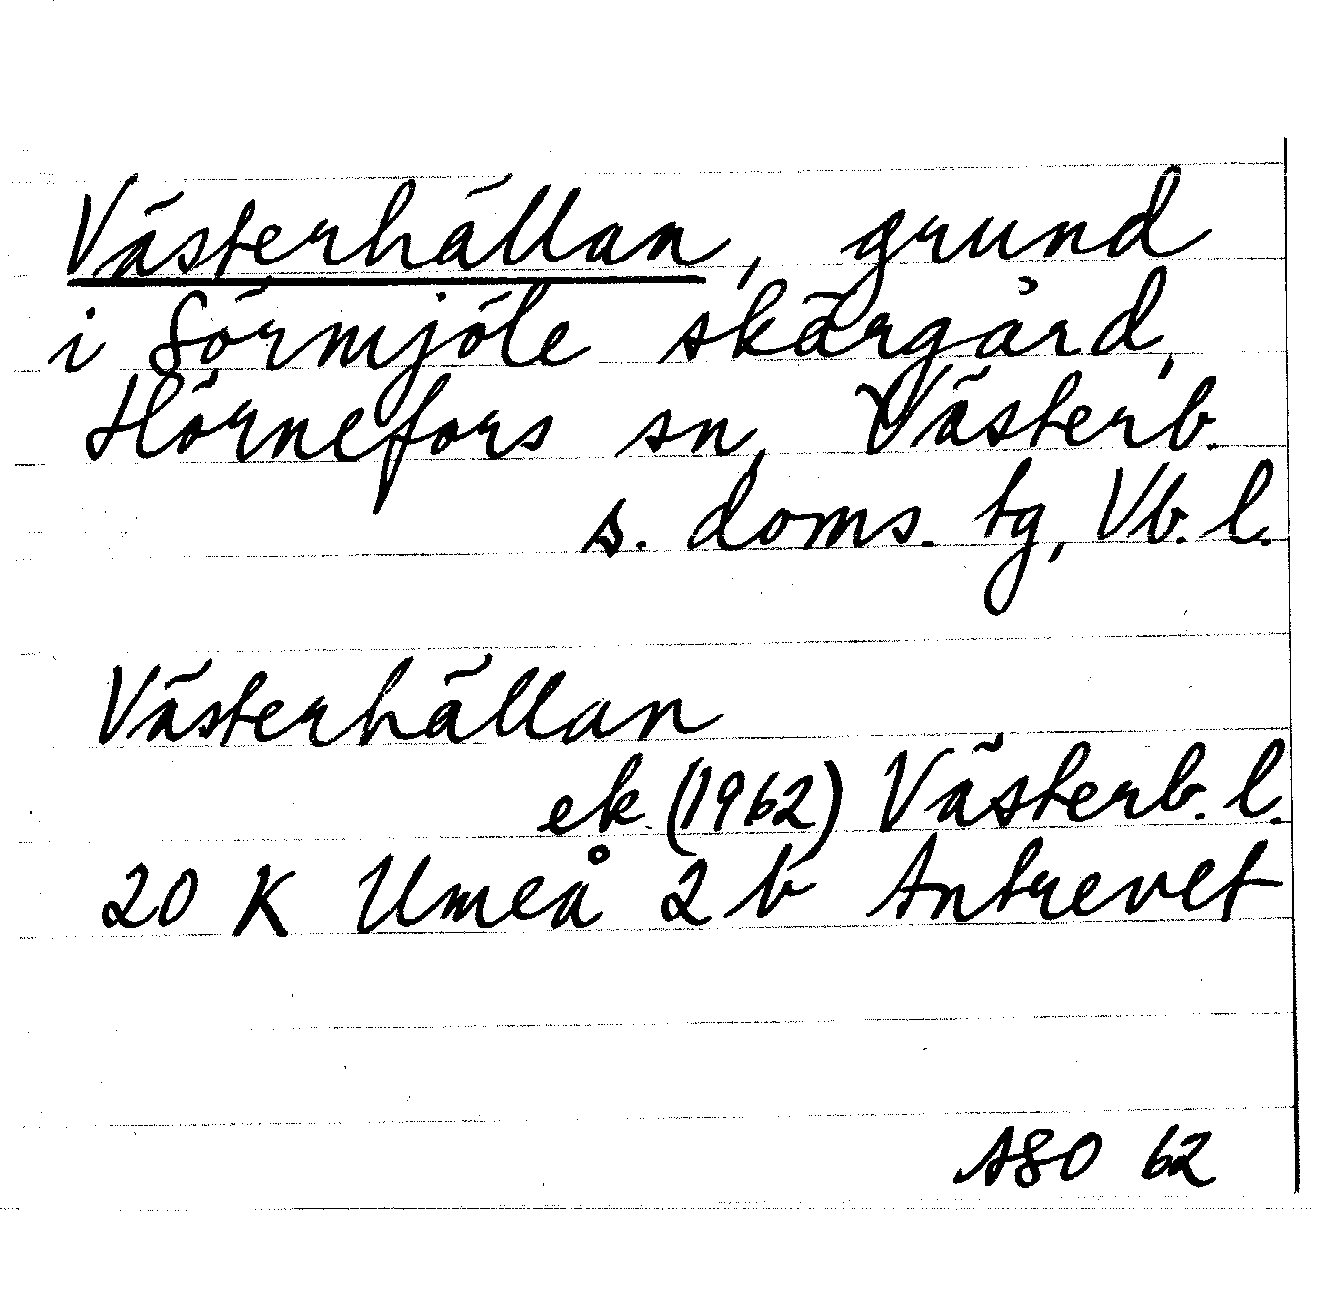 Västerhällan, grund
i Sörmjöle skärgård,
Hörnefors sn, Västerb.
s. doms. tg, Vb. l.
Västerhällan
ek (1962) Västerb. l.
20 K Umeå 2 b Antrevet
ASO 62